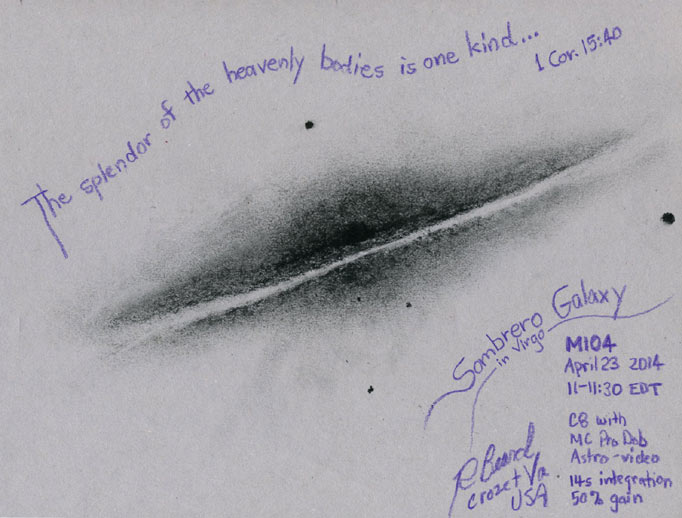 The splendor of the heavenly bodies is one kind...
1 Cor. 15:40
Sombrero Galaxy
in Virgo
M104
April 23 2014
11-11:30 EDT
C8 with
MC Pro Dob
Astro-video
14s integration
50% gain
R Beard
Crozet Va
USA